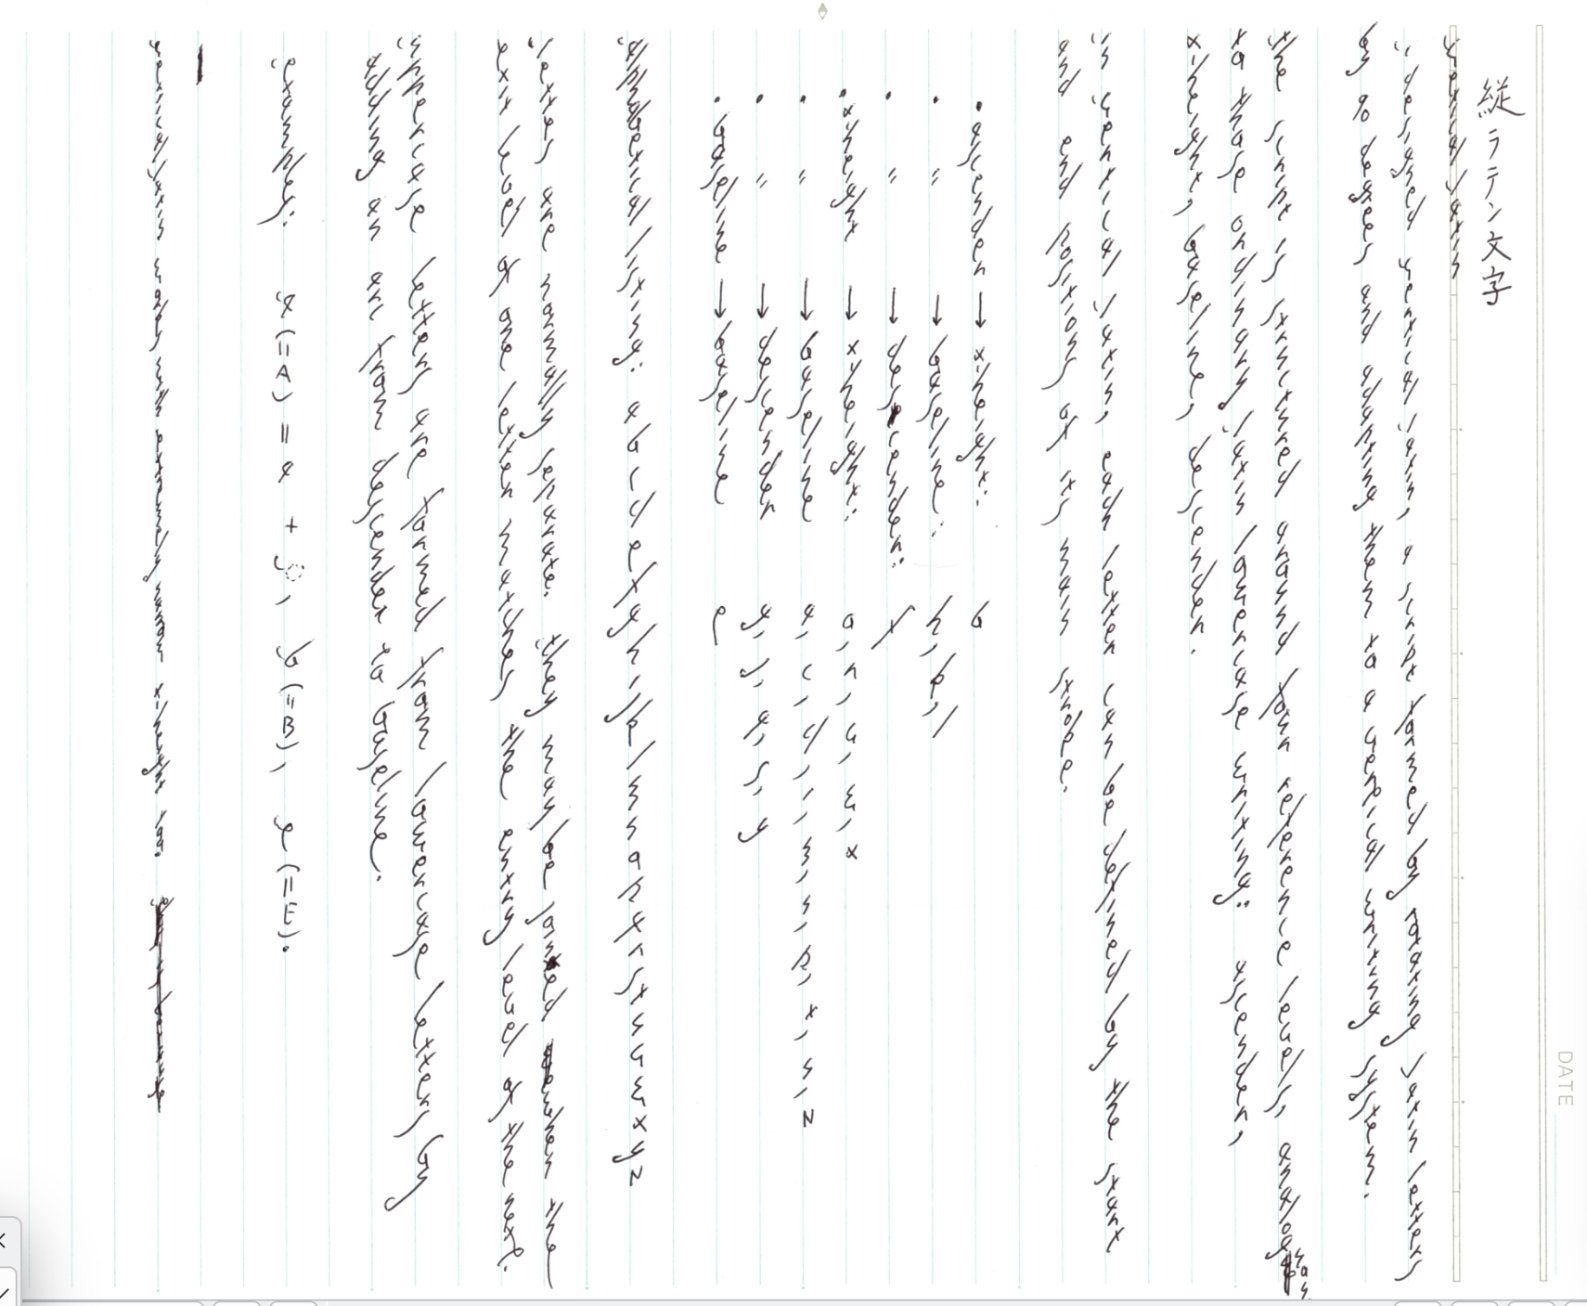 縦ラテン文字
vertical latin
i designed vertical latin, a script formed by rotating latin letters
by 90 degrees and adapting them to a vertical writing system.
the script is structured around four reference levels, analogous
to those ordinary latin lowercase writing: ascender,
x-height, baseline, descender.
in vertical latin, each letter can be defined by the start
and end positions of its main stroke.
• ascender → x-height: b
• 〃 → baseline: h, k, l
• 〃 → descender: f
• x-height → x-height: o, r, v, w, x
• 〃 → baseline a, c, d, i, m, n, p, t, u, z
• 〃 → descender g, j, q, s, y
• baseline → baseline e
alphabetical listing: a b c d e f g h i j k l m n o p q r s t u v w x y z
letters are normally separate. they may be joined when the
exit level of one letter matches the entry level of the next.
uppercase letters are formed from lowercase letters by
adding an arc from descender to baseline.
examples: a (=A) = a + ◌, b (=B), e (=E).
vertical latin works with extremely narrow x-height too.
DATE